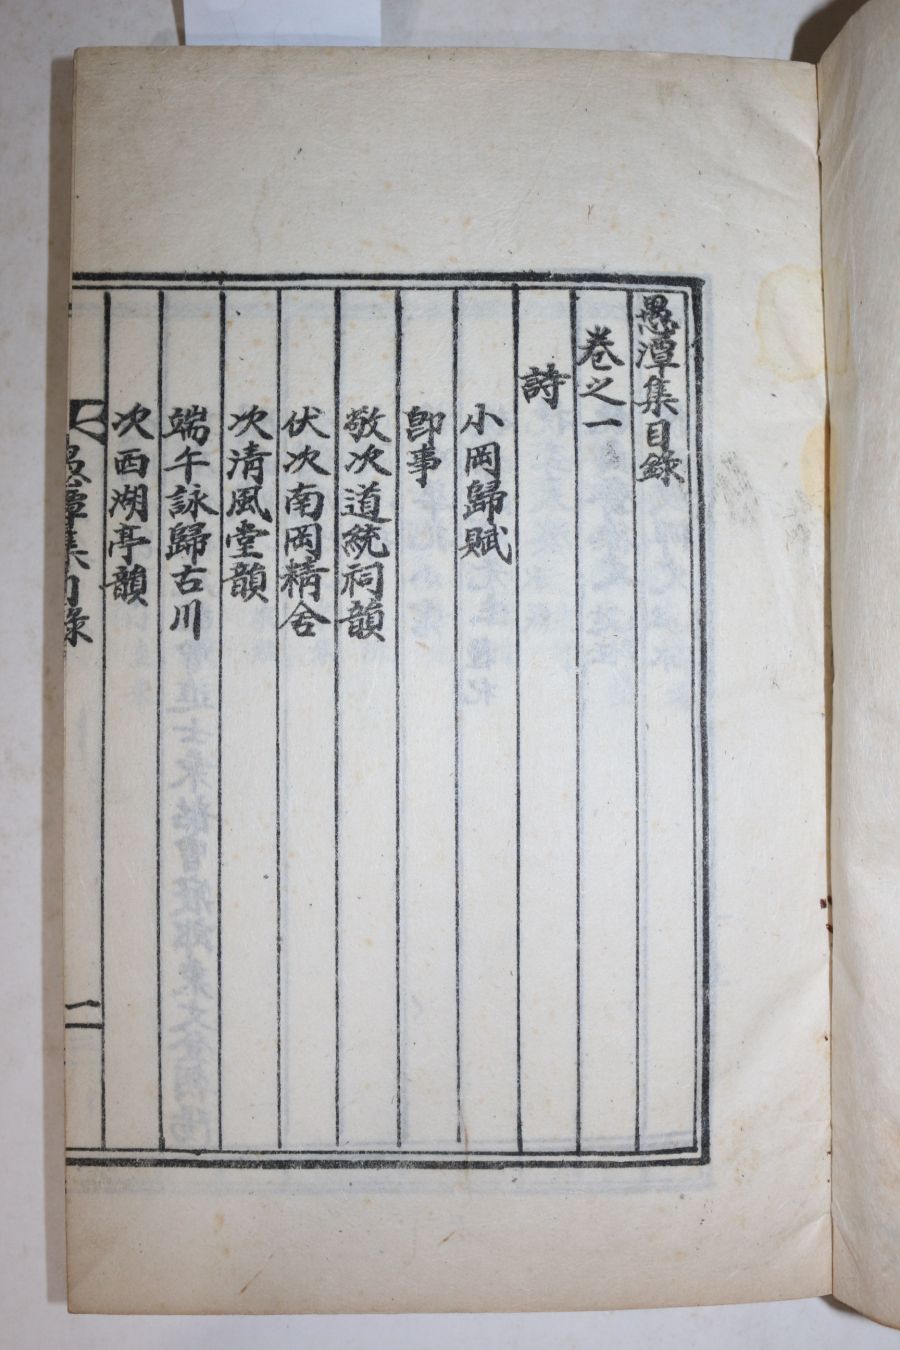 愚潭集目錄
卷之一
詩
小岡歸賦
卽事
敬次道統祠韻
伏次南岡精舍
次淸風堂韻
端午詠歸古川
次西湖亭韻
愚潭集目錄
一